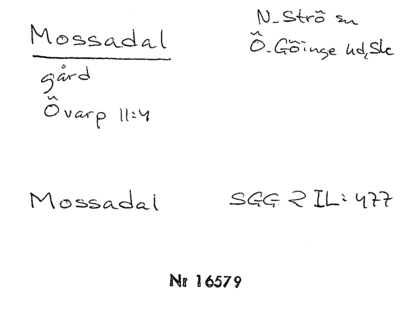 Mossadal
N. Strö sn
Ö. Göinge hd, Sk
gård
Övarp 11:4
Mossadal SGG R IL: 477
Nr 16579